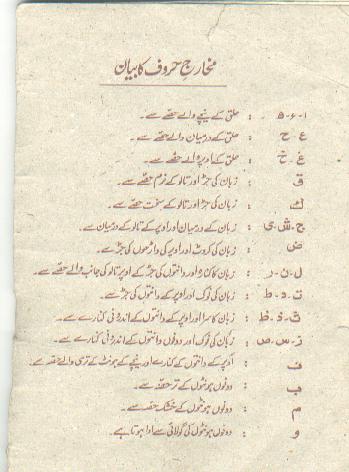 مخارجِ حروف کا بیان
ا - ء - ہ : حلق کے نیچے والے حصّے سے۔
ع ح : حلق کے درمیان والے حصّے سے۔
غ - خ : حلق کے اوپر والے حصّے سے۔
ق : زبان کی جڑ اور تالو کے نرم حصّے سے۔
ك : زبان کی جڑ اور تالو کے سخت حصّے سے۔
ج - ش - ی : زبان کے درمیان اور اوپر کے تالو کے درمیان سے۔
ض : زبان کی کروٹ اور اوپر کی داڑھوں کی جڑ سے۔
ل - ن - ر : زبان کا کنارہ اور دانتوں کی جڑ کے اوپر تالو کی جانب والے حصّے سے۔
ت - د - ط : زبان کی نوک اور اوپر کے دانتوں کی جڑ سے۔
ث - ذ - ظ : زبان کا سرا اور اوپر کے دانتوں کے اندرونی کنارے سے۔
ز - س - ص : زبان کی نوک اور دونوں دانتوں کے اندرونی کنارے سے۔
ف : اوپر کے دانتوں کے کنارے اور نیچے کے ہونٹ کے تری والے حصّہ سے۔
ب : دونوں ہونٹوں کے تر حصّہ سے۔
م : دونوں ہونٹوں کے خشک حصّہ سے۔
و : دونوں ہونٹوں کی گولائی سے ادا ہوتا ہے۔